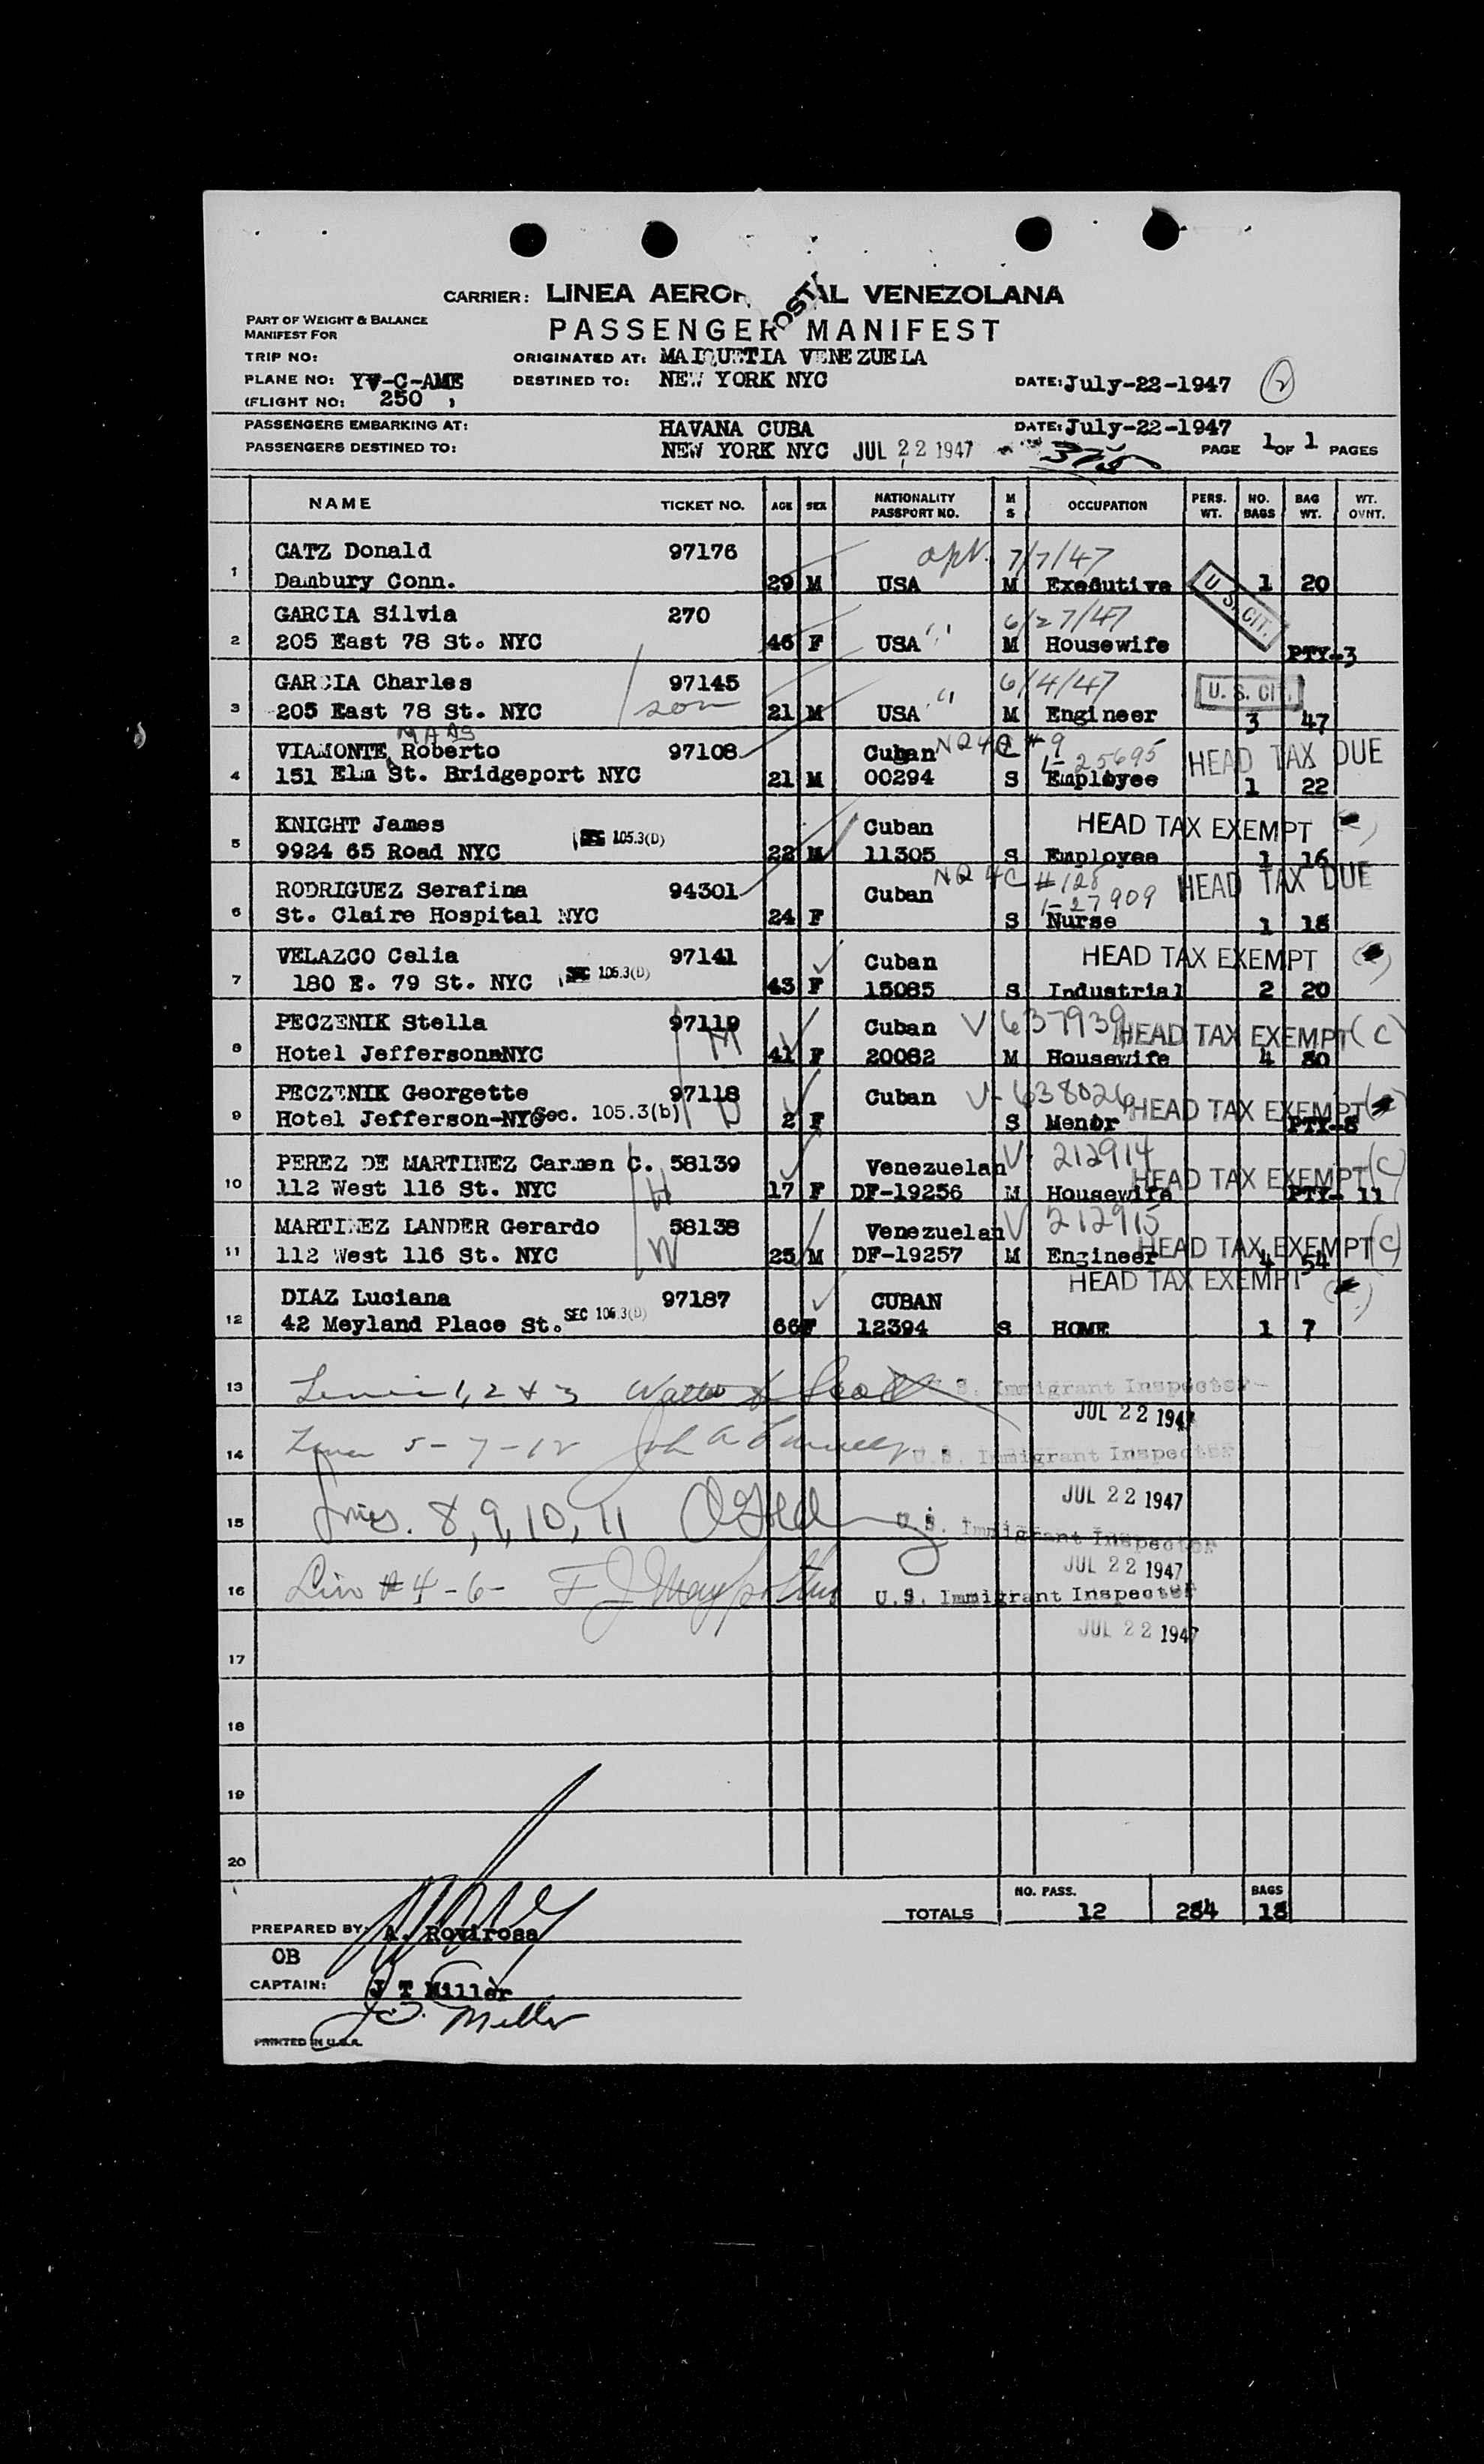 CARRIER: LINEA AEROPOSTAL VENEZOLANA
PART OF WEIGHT & BALANCE
MANIFEST FOR
PASSENGER MANIFEST
TRIP NO: ORIGINATED AT: MAIQUETIA VENEZUELA
PLANE NO: YV-C-AME DESTINED TO: NEW YORK NYC DATE: July-22-1947 2
(FLIGHT NO: 250 )
PASSENGERS EMBARKING AT: HAVANA CUBA DATE: July-22-1947
PASSENGERS DESTINED TO: NEW YORK NYC JUL 22 1947 PAGE 1 OF 1 PAGES
NAME TICKET NO. AGE SEX NATIONALITY PASSPORT NO. M S OCCUPATION PERS. WT. NO. BAGS BAG WT. WT. OVNT.
CATZ Donald 97176 7/7/47
1 Dambury Conn. 29 M USA M Executive U. S. CIT. 1 20
GARCIA Silvia 270 6/27/47
2 205 East 78 St. NYC 46 F USA " M Housewife PTY-3
GARCIA Charles 97145 6/4/47 U. S. CIT.
3 205 East 78 St. NYC son 21 M USA " M Engineer 3 47
MAAS
VIAMONTE Roberto 97108 Cuban NQ4C #9 HEAD TAX DUE
1-25695
4 151 Elm St. Bridgeport NYC 21 M 00294 S Employee 1 22
KNIGHT James Cuban HEAD TAX EXEMPT
5 9924 65 Road NYC SEC 105.3(D) 22 M 11305 S Employee 1 16
RODRIGUEZ Serafina 94301 Cuban NQ 4C #128 HEAD TAX DUE
1-27909
6 St. Claire Hospital NYC 24 F S Nurse 1 18
VELAZCO Celia 97141 Cuban HEAD TAX EXEMPT
7 180 E. 79 St. NYC SEC 105.3(D) 43 F 15085 S Industrial 2 20
PECZENIK Stella 97119 Cuban V 637939 HEAD TAX EXEMPT (C)
8 Hotel Jefferson NYC M 41 F 20082 M Housewife 4 80
PECZENIK Georgette 97118 Cuban V-638026 HEAD TAX EXEMPT
9 Hotel Jefferson-NYC Sec. 105.3(b) D 2 F S Menor PTY-8
PEREZ DE MARTINEZ Carmen C. 58139 Venezuelan V 212914 HEAD TAX EXEMPT (C)
10 112 West 116 St. NYC 17 F DF-19256 M Housewife PTY- 11
MARTINEZ LANDER Gerardo 58138 Venezuelan V 212915 HEAD TAX EXEMPT (C)
11 112 West 116 St. NYC W 25 M DF-19257 M Engineer 4 54
DIAZ Luciana 97187 CUBAN HEAD TAX EXEMPT
12 42 Meyland Place St. SEC 105.3(D) 66 F 12394 S HOME 1 7
13 1, 2 & 3 U. S. Immigrant Inspector
JUL 22 1947
14 5-7-12 U. S. Immigrant Inspector
JUL 22 1947
15 8, 9, 10, 11 U. S. Immigrant Inspector
JUL 22 1947
16 #4-6- U.S. Immigrant Inspector
JUL 22 1947
17
18
19
20
NO. PASS. BAGS
TOTALS 12 284 18
PREPARED BY: A. Rovirosa
OB
CAPTAIN: J T Miller
J T. Miller
PRINTED IN U.S.A.